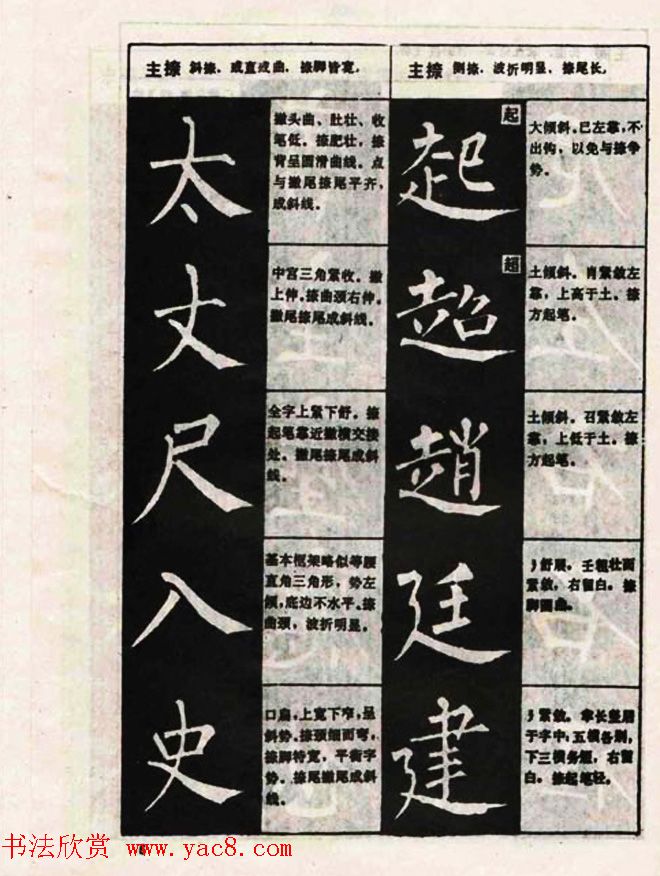 主捺 斜捺，或直或曲，捺脚皆宽。
太
撇头曲、肚壮、收
笔低。捺肥壮，捺
背呈圆滑曲线。点
与撇尾捺尾平齐，
成斜线。
丈
中宫三角紧收。撇
上伸，捺曲颈右伸。
撇尾捺尾成斜线。
尺
全字上紧下舒。捺
起笔靠近撇横交接
处。撇尾捺尾成斜
线。
入
基本框架略似等腰
直角三角形，势左
倾，底边不水平。捺
曲颈，波折明显。
史
口扁，上宽下窄，呈
斜势。捺颈细而弯，
捺脚特宽，平衡字
势。捺尾撇尾成斜
线。
主捺 侧捺，波折明显，捺尾长。
起
起
大倾斜。巳左靠，不
出钩，以免与捺争
势。
超
超
土倾斜。肖紧敛左
靠，上高于土。捺
方起笔。
趙
土倾斜。召紧敛左
靠，上低于土。捺
方起笔。
廷
舒展，壬粗壮而
紧敛，右留白。捺
脚圆曲。
建
紧敛。聿长竖居
于字中，五横各别，
下三横务短，右留
白。捺起笔轻。
书法欣赏 www.yac8.com